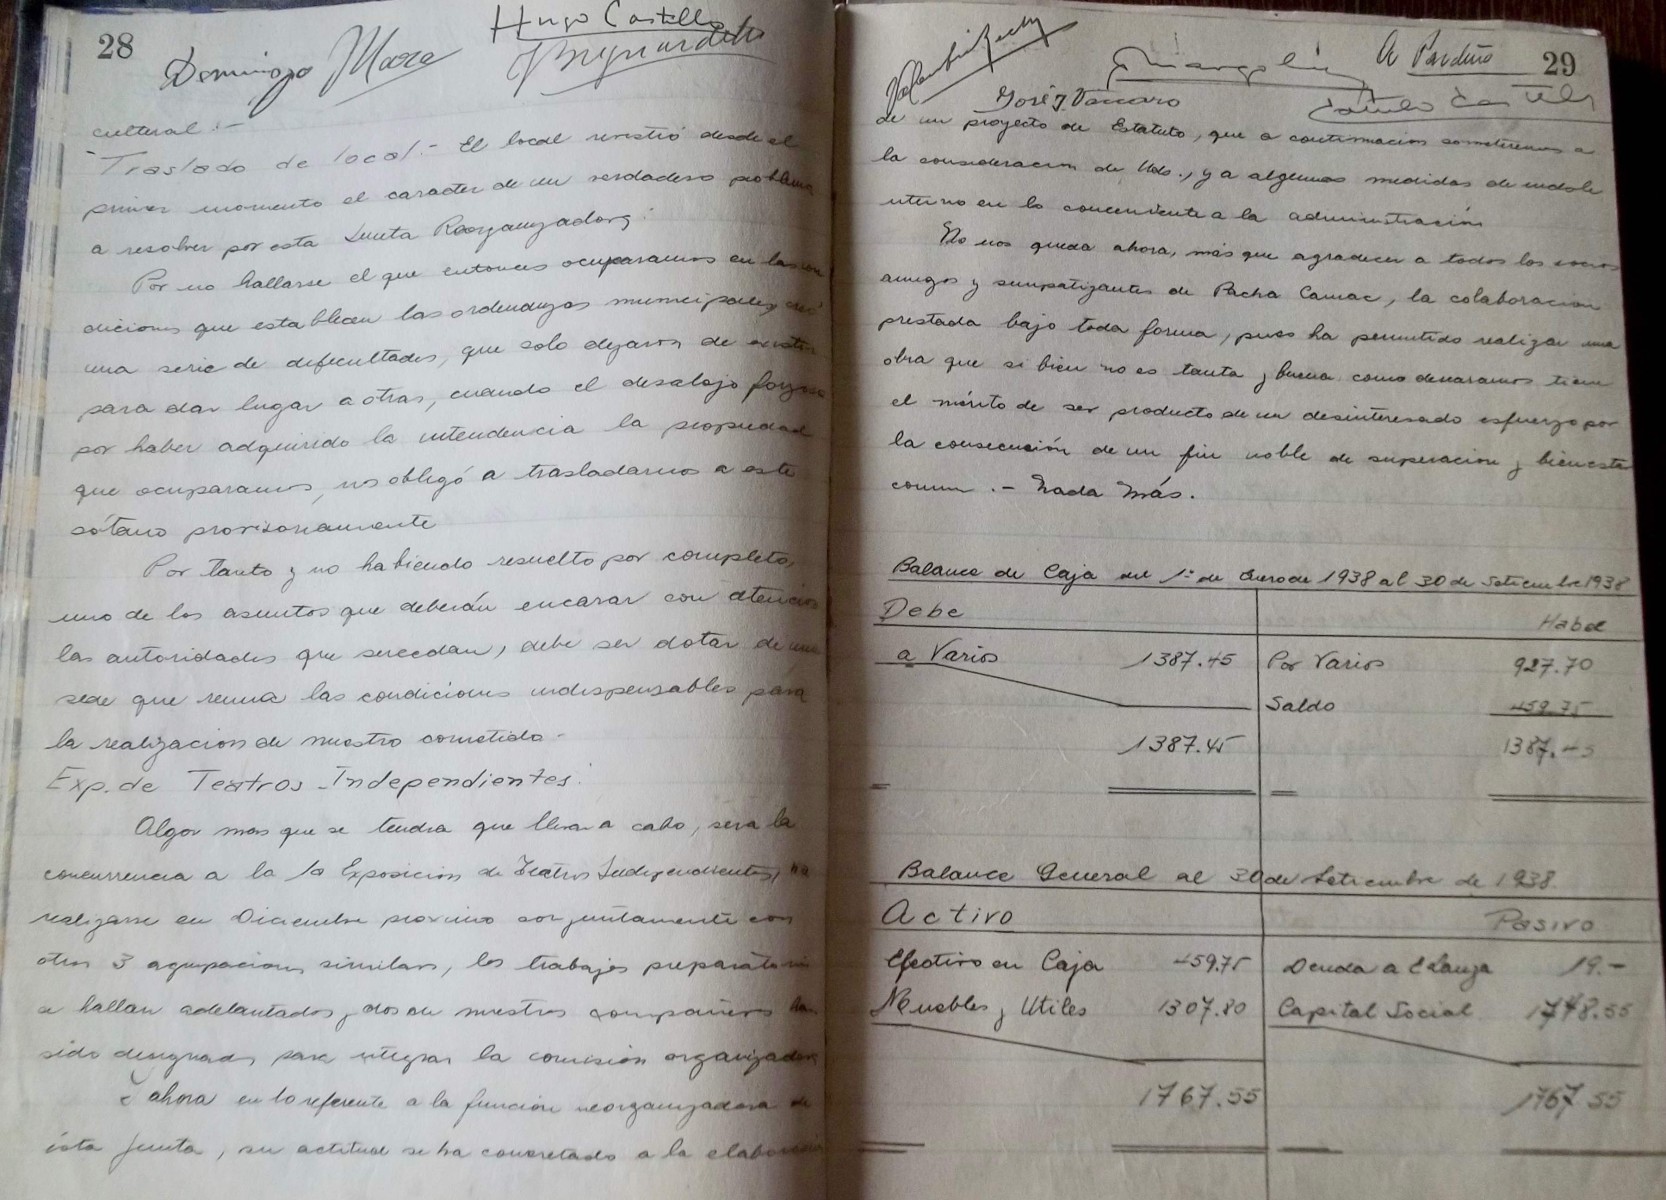 28
Hugo Castillo
Domingo Maza
cultural:-
Traslado de local.- El local revistió desde el
primer momento el caracter de un verdadero problema
a resolver por esta Junta Reorganizadora:
Por no hallarse el que entonces ocuparamos en las con
diciones que establecen las ordenanzas municipales, creó
una serie de dificultades, que solo dejaron de existir
para dar lugar a otras, cuando el desalojo forzoso
por haber adquirido la intendencia la propiedad
que ocuparamos, nos obligó a trasladarnos a este
sótano provisoriamente
Por tanto y no habiendo resuelto por completo,
uno de los asuntos que deberán encarar con atención
las autoridades que sucedan, debe ser dotar de una
sede que reuna las condiciones indispensables para
la realizacion de nuestro cometido.-
Exp. de Teatros Independientes:
Algo mas que se tendra que llevar a cabo, sera la
concurrencia a la 1a Exposicion de Teatros Independientes, ha
realizarse en Diciembre proximo conjuntamente con
otras 3 agrupaciones similares, los trabajos preparatorios
se hallan adelantados y dos de nuestros compañeros han
sido designados para integrar la comisión organizadora
Y ahora en lo referente a la función reorganizadora de
ésta Junta, su actitud se ha concretado a la elaboración
29
A Pardiño
José J Vaccaro
Castillo
de un proyecto de Estatuto, que a continuacion someteremos a
la consideracion de Uds., y a algunas medidas de indole
interno en lo concerniente a la administración
No nos queda ahora, más que agradecer a todos los socios
amigos y simpatizantes de Pacha Camac, la colaboracion
prestada bajo toda forma, pues ha permitido realizar una
obra que si bien no es tanta y buena como desearamos tiene
el mérito de ser producto de un desinteresado esfuerzo por
la consecución de un fin noble de superacion y bienestar
comun.- Nada Más.
Balance de Caja del 1º de Enero de 1938 al 30 de Setiembre 1938
Debe Haber
a Varios 1387.45 Por Varios 927.70
Saldo 459.75
1387.45 1387.45
Balance General al 30 de Setiembre de 1938
Activo Pasivo
Efectivo en Caja 459.75 Deuda a E Lanza 19.-
Muebles y Utiles 1307.80 Capital Social 1748.55
1767.55 1767.55